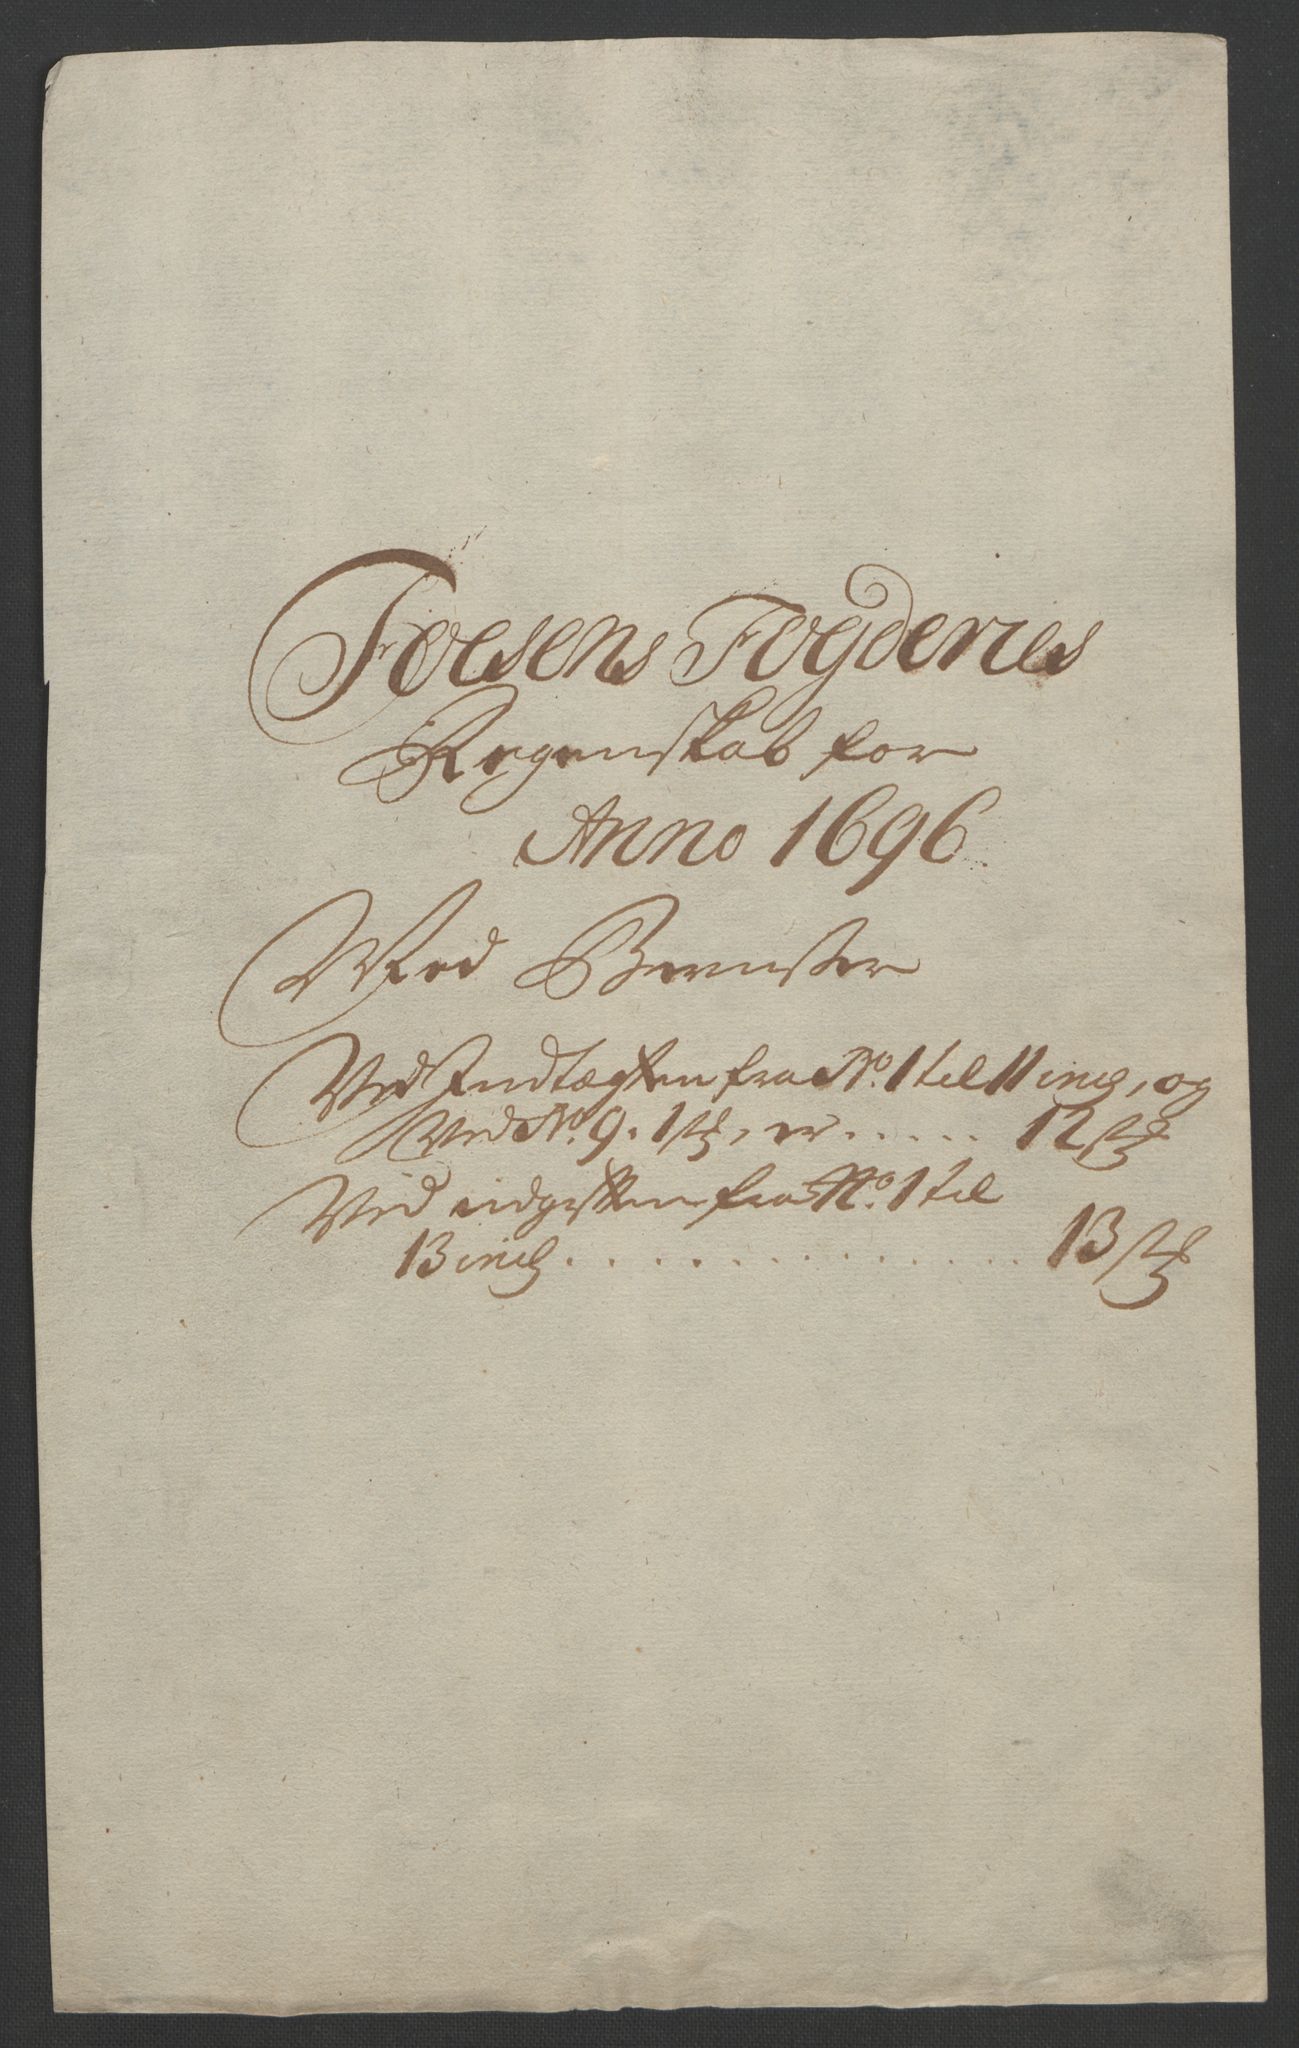 Foesens Fogderies
Regenskab for
Anno 1696
Med Beviister
Ved Indtægten fra No. 1 til 11 incl, og
Ved No. 9. 1 st, er ..... 12 st
Ved udgiften fra No. 1 til
13 incl ............... 13 st